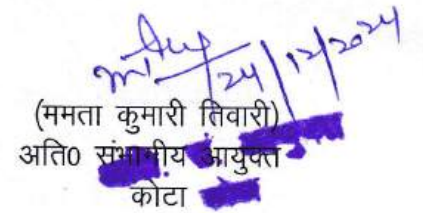 24/12/2024
(ममता कुमारी तिवारी)
अति0 संभागीय आयुक्त
कोटा